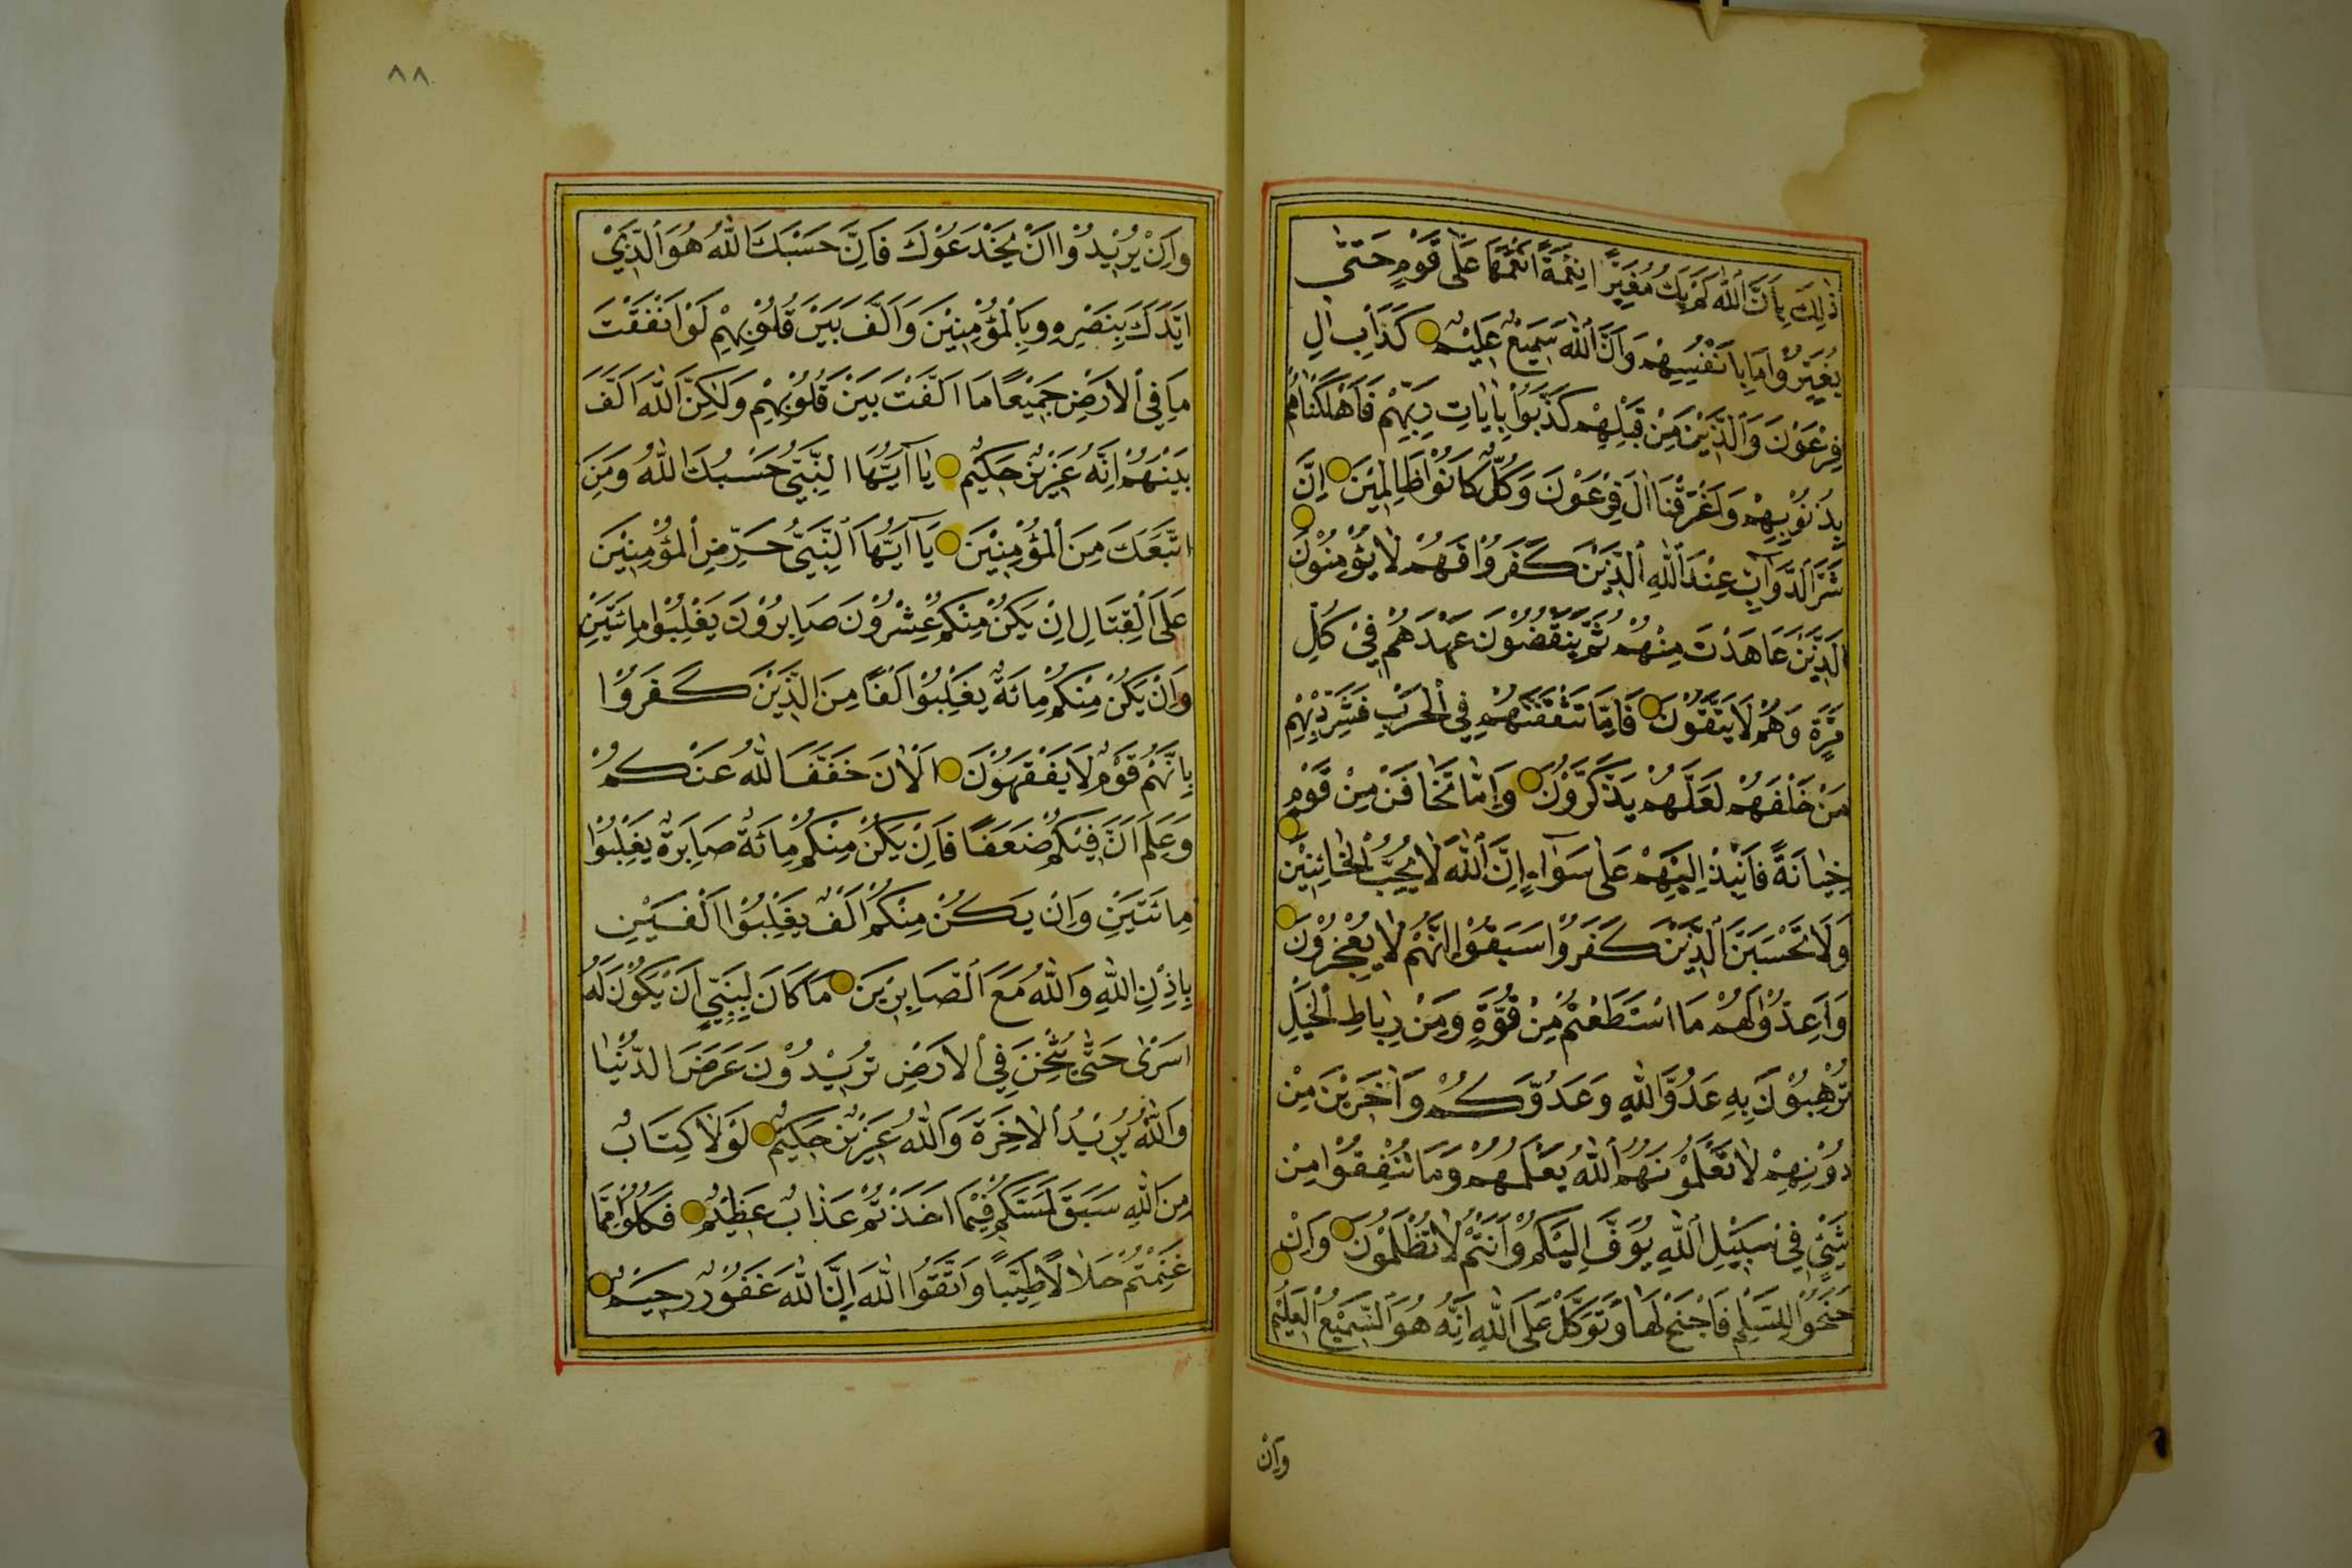 ذٰلِكَ بِاَنَّ اللّٰهَ لَمْ يَكُ مُغَيِّرًا نِعْمَةً اَنْعَمَهَا عَلٰى قَوْمٍ حَتّٰى
يُغَيِّرُوْا مَا بِاَنْفُسِهِمْ وَاَنَّ اللّٰهَ سَمِيْعٌ عَلِيْمٌ كَدَاْبِ اٰلِ
فِرْعَوْنَ وَالَّذِيْنَ مِنْ قَبْلِهِمْ كَذَّبُوْا بِاٰيَاتِ رَبِّهِمْ فَاَهْلَكْنَاهُمْ
بِذُنُوْبِهِمْ وَاَغْرَقْنَا اٰلَ فِرْعَوْنَ وَكُلٌّ كَانُوْا ظَالِمِيْنَ اِنَّ
شَرَّ الدَّوَآبِّ عِنْدَ اللّٰهِ الَّذِيْنَ كَفَرُوْا فَهُمْ لَا يُؤْمِنُوْنَ
اَلَّذِيْنَ عَاهَدْتَ مِنْهُمْ ثُمَّ يَنْقُضُوْنَ عَهْدَهُمْ فِيْ كُلِّ
مَرَّةٍ وَهُمْ لَا يَتَّقُوْنَ فَاِمَّا تَثْقَفَنَّهُمْ فِي الْحَرْبِ فَشَرِّدْ بِهِمْ
مَنْ خَلْفَهُمْ لَعَلَّهُمْ يَذَّكَّرُوْنَ وَاِمَّا تَخَافَنَّ مِنْ قَوْمٍ
خِيَانَةً فَانْبِذْ اِلَيْهِمْ عَلٰى سَوَآءٍ اِنَّ اللّٰهَ لَا يُحِبُّ الْخَائِنِيْنَ
وَلَا تَحْسَبَنَّ الَّذِيْنَ كَفَرُوْا سَبَقُوْا اِنَّهُمْ لَا يُعْجِزُوْنَ
وَاَعِدُّوْا لَهُمْ مَا اسْتَطَعْتُمْ مِنْ قُوَّةٍ وَمِنْ رِبَاطِ الْخَيْلِ
تُرْهِبُوْنَ بِهِ عَدُوَّ اللّٰهِ وَعَدُوَّكُمْ وَاٰخَرِيْنَ مِنْ
دُوْنِهِمْ لَا تَعْلَمُوْنَهُمُ اللّٰهُ يَعْلَمُهُمْ وَمَا تُنْفِقُوْا مِنْ
شَيْئٍ فِيْ سَبِيْلِ اللّٰهِ يُوَفَّ اِلَيْكُمْ وَاَنْتُمْ لَا تُظْلَمُوْنَ وَاِنْ
جَنَحُوْا لِلسَّلْمِ فَاجْنَحْ لَهَا وَتَوَكَّلْ عَلَى اللّٰهِ اِنَّهُ هُوَ السَّمِيْعُ الْعَلِيْمُ
وَاِنْ
٨٨
وَاِنْ يُرِيْدُوْا اَنْ يَخْدَعُوْكَ فَاِنَّ حَسْبَكَ اللّٰهُ هُوَ الَّذِيْ
اَيَّدَكَ بِنَصْرِهِ وَبِالْمُؤْمِنِيْنَ وَاَلَّفَ بَيْنَ قُلُوْبِهِمْ لَوْ اَنْفَقْتَ
مَا فِي الْاَرْضِ جَمِيْعًا مَا اَلَّفْتَ بَيْنَ قُلُوْبِهِمْ وَلٰكِنَّ اللّٰهَ اَلَّفَ
بَيْنَهُمْ اِنَّهُ عَزِيْزٌ حَكِيْمٌ يَا آيُّهَا النَّبِيُّ حَسْبُكَ اللّٰهُ وَمَنِ
اتَّبَعَكَ مِنَ الْمُؤْمِنِيْنَ يَا آيُّهَا النَّبِيُّ حَرِّضِ الْمُؤْمِنِيْنَ
عَلَى الْقِتَالِ اِنْ يَكُنْ مِنْكُمْ عِشْرُوْنَ صَابِرُوْنَ يَغْلِبُوْا مِائَتَيْنِ
وَاِنْ يَكُنْ مِنْكُمْ مِائَةٌ يَغْلِبُوْا اَلْفًا مِنَ الَّذِيْنَ كَفَرُوْا
بِاَنَّهُمْ قَوْمٌ لَا يَفْقَهُوْنَ اَلْاٰنَ خَفَّفَ اللّٰهُ عَنْكُمْ
وَعَلِمَ اَنَّ فِيْكُمْ ضَعَفًا فَاِنْ يَكُنْ مِنْكُمْ مِائَةٌ صَابِرَةٌ يَغْلِبُوْا
مِائَتَيْنِ وَاِنْ يَكُنْ مِنْكُمْ اَلْفٌ يَغْلِبُوْا اَلْفَيْنِ
بِاِذْنِ اللّٰهِ وَاللّٰهُ مَعَ الصَّابِرِيْنَ مَا كَانَ لِنَبِيٍّ اَنْ يَكُوْنَ لَهُ
اَسْرٰى حَتّٰى يُثْخِنَ فِي الْاَرْضِ تُرِيْدُوْنَ عَرَضَ الدُّنْيَا
وَاللّٰهُ يُرِيْدُ الْاٰخِرَةَ وَاللّٰهُ عَزِيْزٌ حَكِيْمٌ لَوْلَا كِتَابٌ
مِنَ اللّٰهِ سَبَقَ لَمَسَّكُمْ فِيْمَا اَخَذْتُمْ عَذَابٌ عَظِيْمٌ فَكُلُوْا مِمَّا
غَنِمْتُمْ حَلَالًا طَيِّبًا وَاتَّقُوا اللّٰهَ اِنَّ اللّٰهَ غَفُوْرٌ رَحِيْمٌ